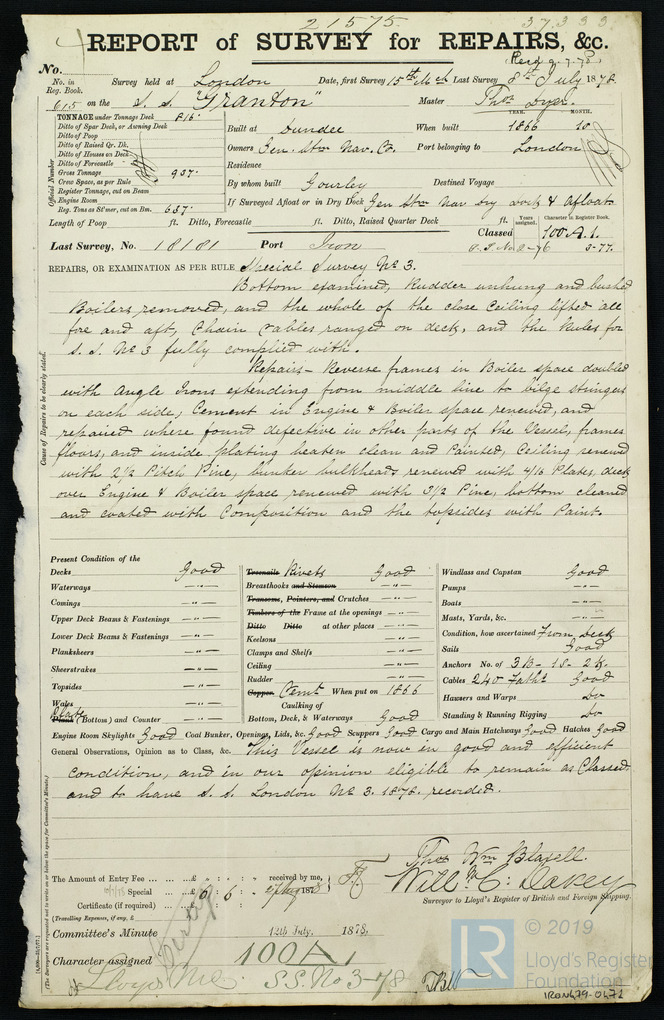 21575. 37333
REPORT of SURVEY for REPAIRS, &c.
Recd 9-7-78
No.
No. in Reg. Book. Survey held at London Date, first Survey 15th Mch Last Survey 8th July 1878
615 on the S.S. "Granton" Master Thos Dyer.
TONNAGE under Tonnage Deck 816.
Ditto of Spar Deck, or Awning Deck
Ditto of Poop
Ditto of Raised Qr. Dk.
Ditto of Houses on Deck
Ditto of Forecastle
Gross Tonnage 937.
Crew Space, as per Rule
Register Tonnage, cut on Beam
Engine Room
Reg. Tons as St'mer, cut on Bm. 637.
Official Number
YEAR. MONTH.
Built at Dundee When built 1866 10
Owners Gen. Stm Nav. Co. Port belonging to London
Residence
By whom built Gourley Destined Voyage
If Surveyed Afloat or in Dry Dock Gen Stm Nav Dry Dock & Afloat
Length of Poop ft. Ditto, Forecastle ft. Ditto, Raised Quarter Deck ft.
Years assigned. Character in Register Book.
Classed 100 A.1.
Last Survey, No. 18181 Port Iron
3-77.
REPAIRS, OR EXAMINATION AS PER RULE Special Survey No 3.
Bottom examined, Rudder unhung and bushed
Boilers removed, and the whole of the close Ceiling lifted all
fore and aft, Chain Cables ranged on deck, and the Rules for
S.S. No 3 fully complied with.
Repairs- Reverse frames in Boiler space doubled
with Angle Irons extending from middle line to bilge stringers
on each side, Cement in Engine & Boiler space renewed, and
repaired where found defective in other parts of the Vessel, frames
floors, and inside plating beaten clean and Painted, Ceiling renewed
with 2 1/2 Pitch Pine, bunker bulkheads renewed with 4/16 Plates, deck
over Engine & Boiler space renewed with 3 1/2 Pine, bottom cleaned
and coated with Composition and the topsides with Paint.
Cause of Repairs to be clearly stated.
Present Condition of the
Decks Good
Waterways -"-
Comings -"-
Upper Deck Beams & Fastenings -"-
Lower Deck Beams & Fastenings -"-
Planksheers -"-
Sheerstrakes -"-
Topsides -"-
Wales -"-
Plate
Plank (Bottom) and Counter -"-
Treenails Rivets Good
Breasthooks and Stemson -"-
Transoms, Pointers, and Crutches -"-
Timbers of the Frame at the openings -"-
Ditto Ditto at other places -"-
Keelsons -"-
Clamps and Shelfs -"-
Ceiling -"-
Rudder -"-
Copper. Cemt When put on 1866
Caulking of
Bottom, Deck, & Waterways Good
Windlass and Capstan Good
Pumps -"-
Boats -"-
Masts, Yards, &c. -"-
Condition, how ascertained From Deck
Sails Good
Anchors No. of 3 B- 1S- 2K.
Cables 240 Faths Good
Hawsers and Warps Do
Standing & Running Rigging Do
Engine Room Skylights Good Coal Bunker, Openings, Lids, &c. Good Scuppers Good Cargo and Main Hatchways Good Hatches Good
General Observations, Opinion as to Class, &c. This Vessel is now in good and efficient
condition, and in our opinion eligible to remain as Classed
and to have S.S. London No 3. 1878. recorded.
(The Surveyors are requested not to write on or below the space for Committee's Minute.)
Thos Wm Blaxell.
Will m C: Davey
Surveyor to Lloyd's Register of British and Foreign Shipping.
The Amount of Entry Fee ... £ : : received by me,
Special £ 6 : 6 : 1878
Certificate (if required) ... : :
(Travelling Expenses, if any, £ )
Committee's Minute 12th July, 1878,
Character assigned 100A1
Lloyds MC S.S. No 3-78
© 2019
LR
Lloyd's Register
Foundation
IRON479-0472